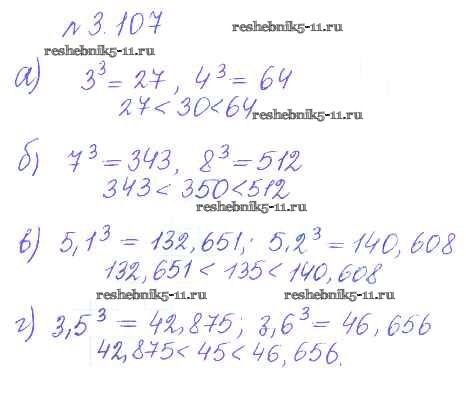 № 3.107
reshebnik5-11.ru
reshebnik5-11.ru
а) 3³ = 27, 4³ = 64
27 < 30 < 64
reshebnik5-11.ru
б) 7³ = 343, 8³ = 512
343 < 350 < 512
reshebnik5-11.ru
в) 5,1³ = 132,651; 5,2³ = 140,608
132,651 < 135 < 140,608
reshebnik5-11.ru reshebnik5-11.ru
г) 3,5³ = 42,875; 3,6³ = 46,656
42,875 < 45 < 46,656.